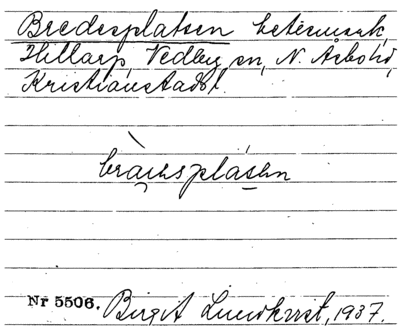 Bredesplatsen betesmark,
Hillarp, Vedby sn, N. Åsbo hd,
Kristianstads l.
Nr 5506. Birgit Lundkvist, 1937.